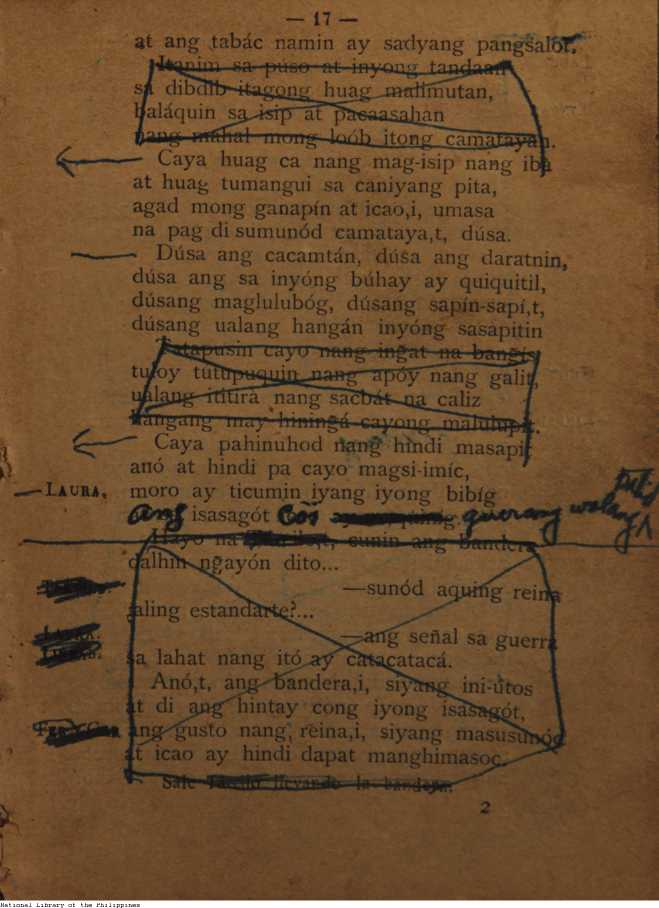 — 17 —
at ang tabác namin ay sadyang pangsalot.
Itanim sa púso at inyong tandaan
sa dibdib itagong huag malimutan,
baláquin sa isip at pacaasahan
nang mahal mong loób itong camatayan.
Caya huag ca nang mag-isip nang iba
at huag tumangui sa caniyang pita,
agad mong ganapín at icao,i, umasa
na pag di sumunód camataya,t, dúsa.
Dúsa ang cacamtán, dúsa ang daratnin,
dúsa ang sa inyóng búhay ay quiquitil,
dúsang maglulubóg, dúsang sapín-sapí,t,
dúsang ualang hangán inyóng sasapitin
tatapusin cayo nang ingat na bangis
tuloy tutupuquin nang apóy nang galit,
ualang ititirá nang sacbát na caliz
hangang may hiningá cayong malulupit.
Caya pahinuhod nang hindi masapit
anó at hindi pa cayo magsi-imíc,
LAURA. moro ay ticumin iyang iyong bibíg
ang isasagót co,i guerang walang
Hayo na cunin ang bandera
dalhin ngayón dito...
—sunód aquing reina
aling estandarte?...
LAURA. —ang señal sa guerra
sa lahat nang itó ay catacatacá.
Anó,t, ang bandera,i, siyang ini-utos
at di ang hintay cong iyong isasagót,
ang gusto nang reina,i, siyang masusunód
at icao ay hindi dapat manghimasoc.
Sale llevando la bandera.
2
National Library of the Philippines